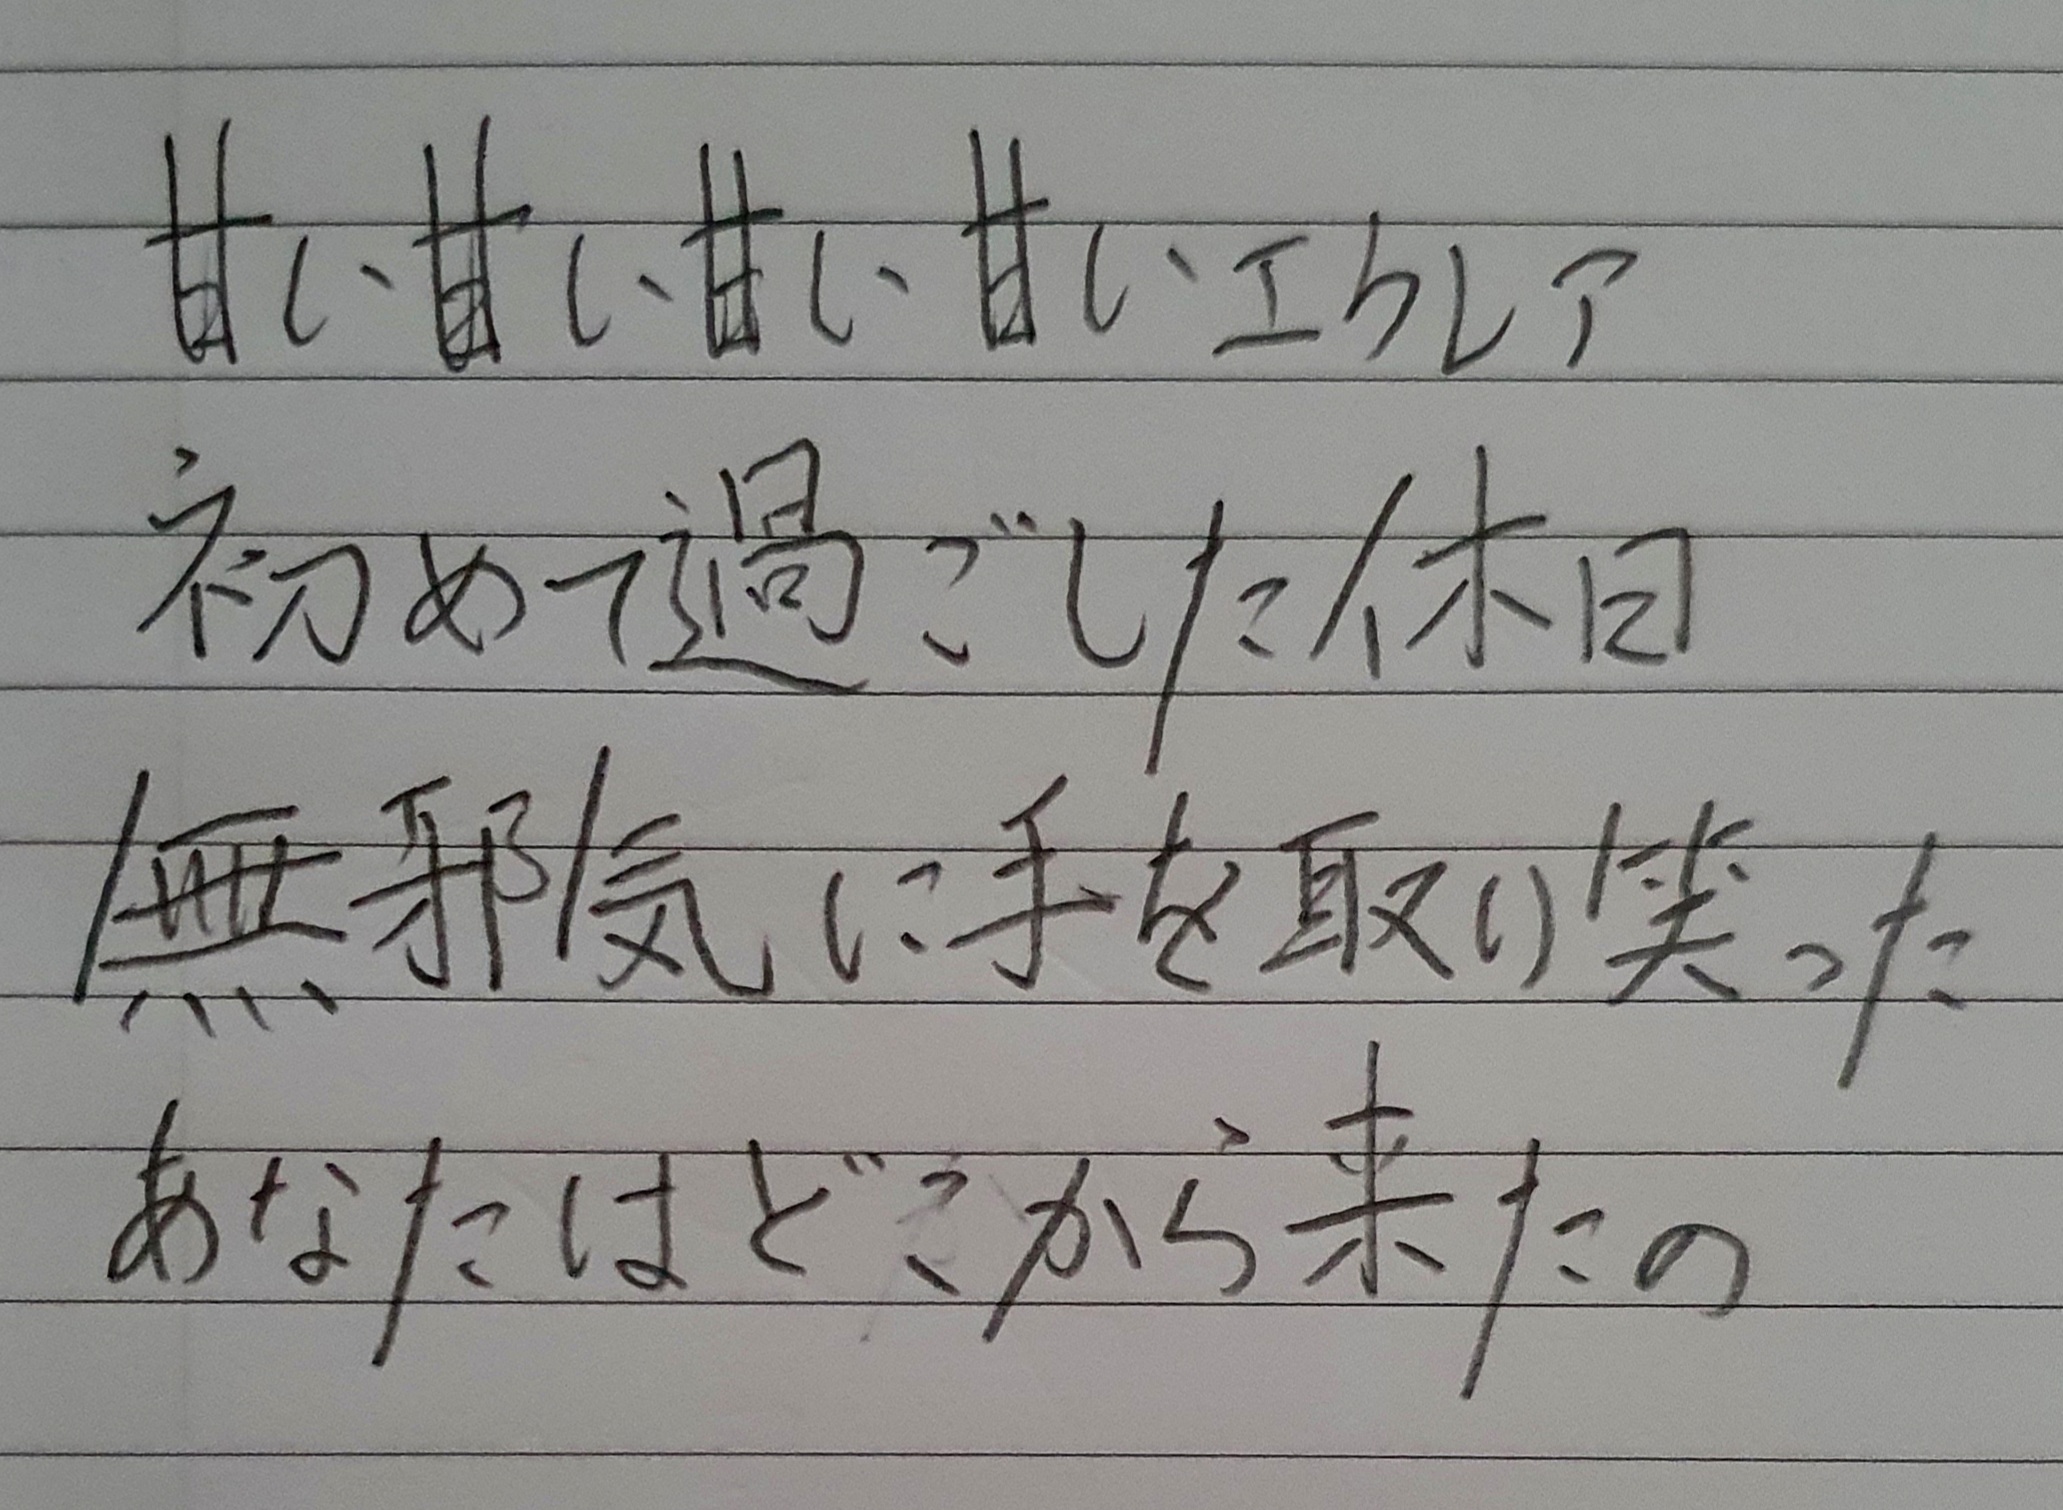 甘い甘い甘い甘いエクレア
初めて過ごした休日
無邪気に手を取り笑った
あなたはどこから来たの